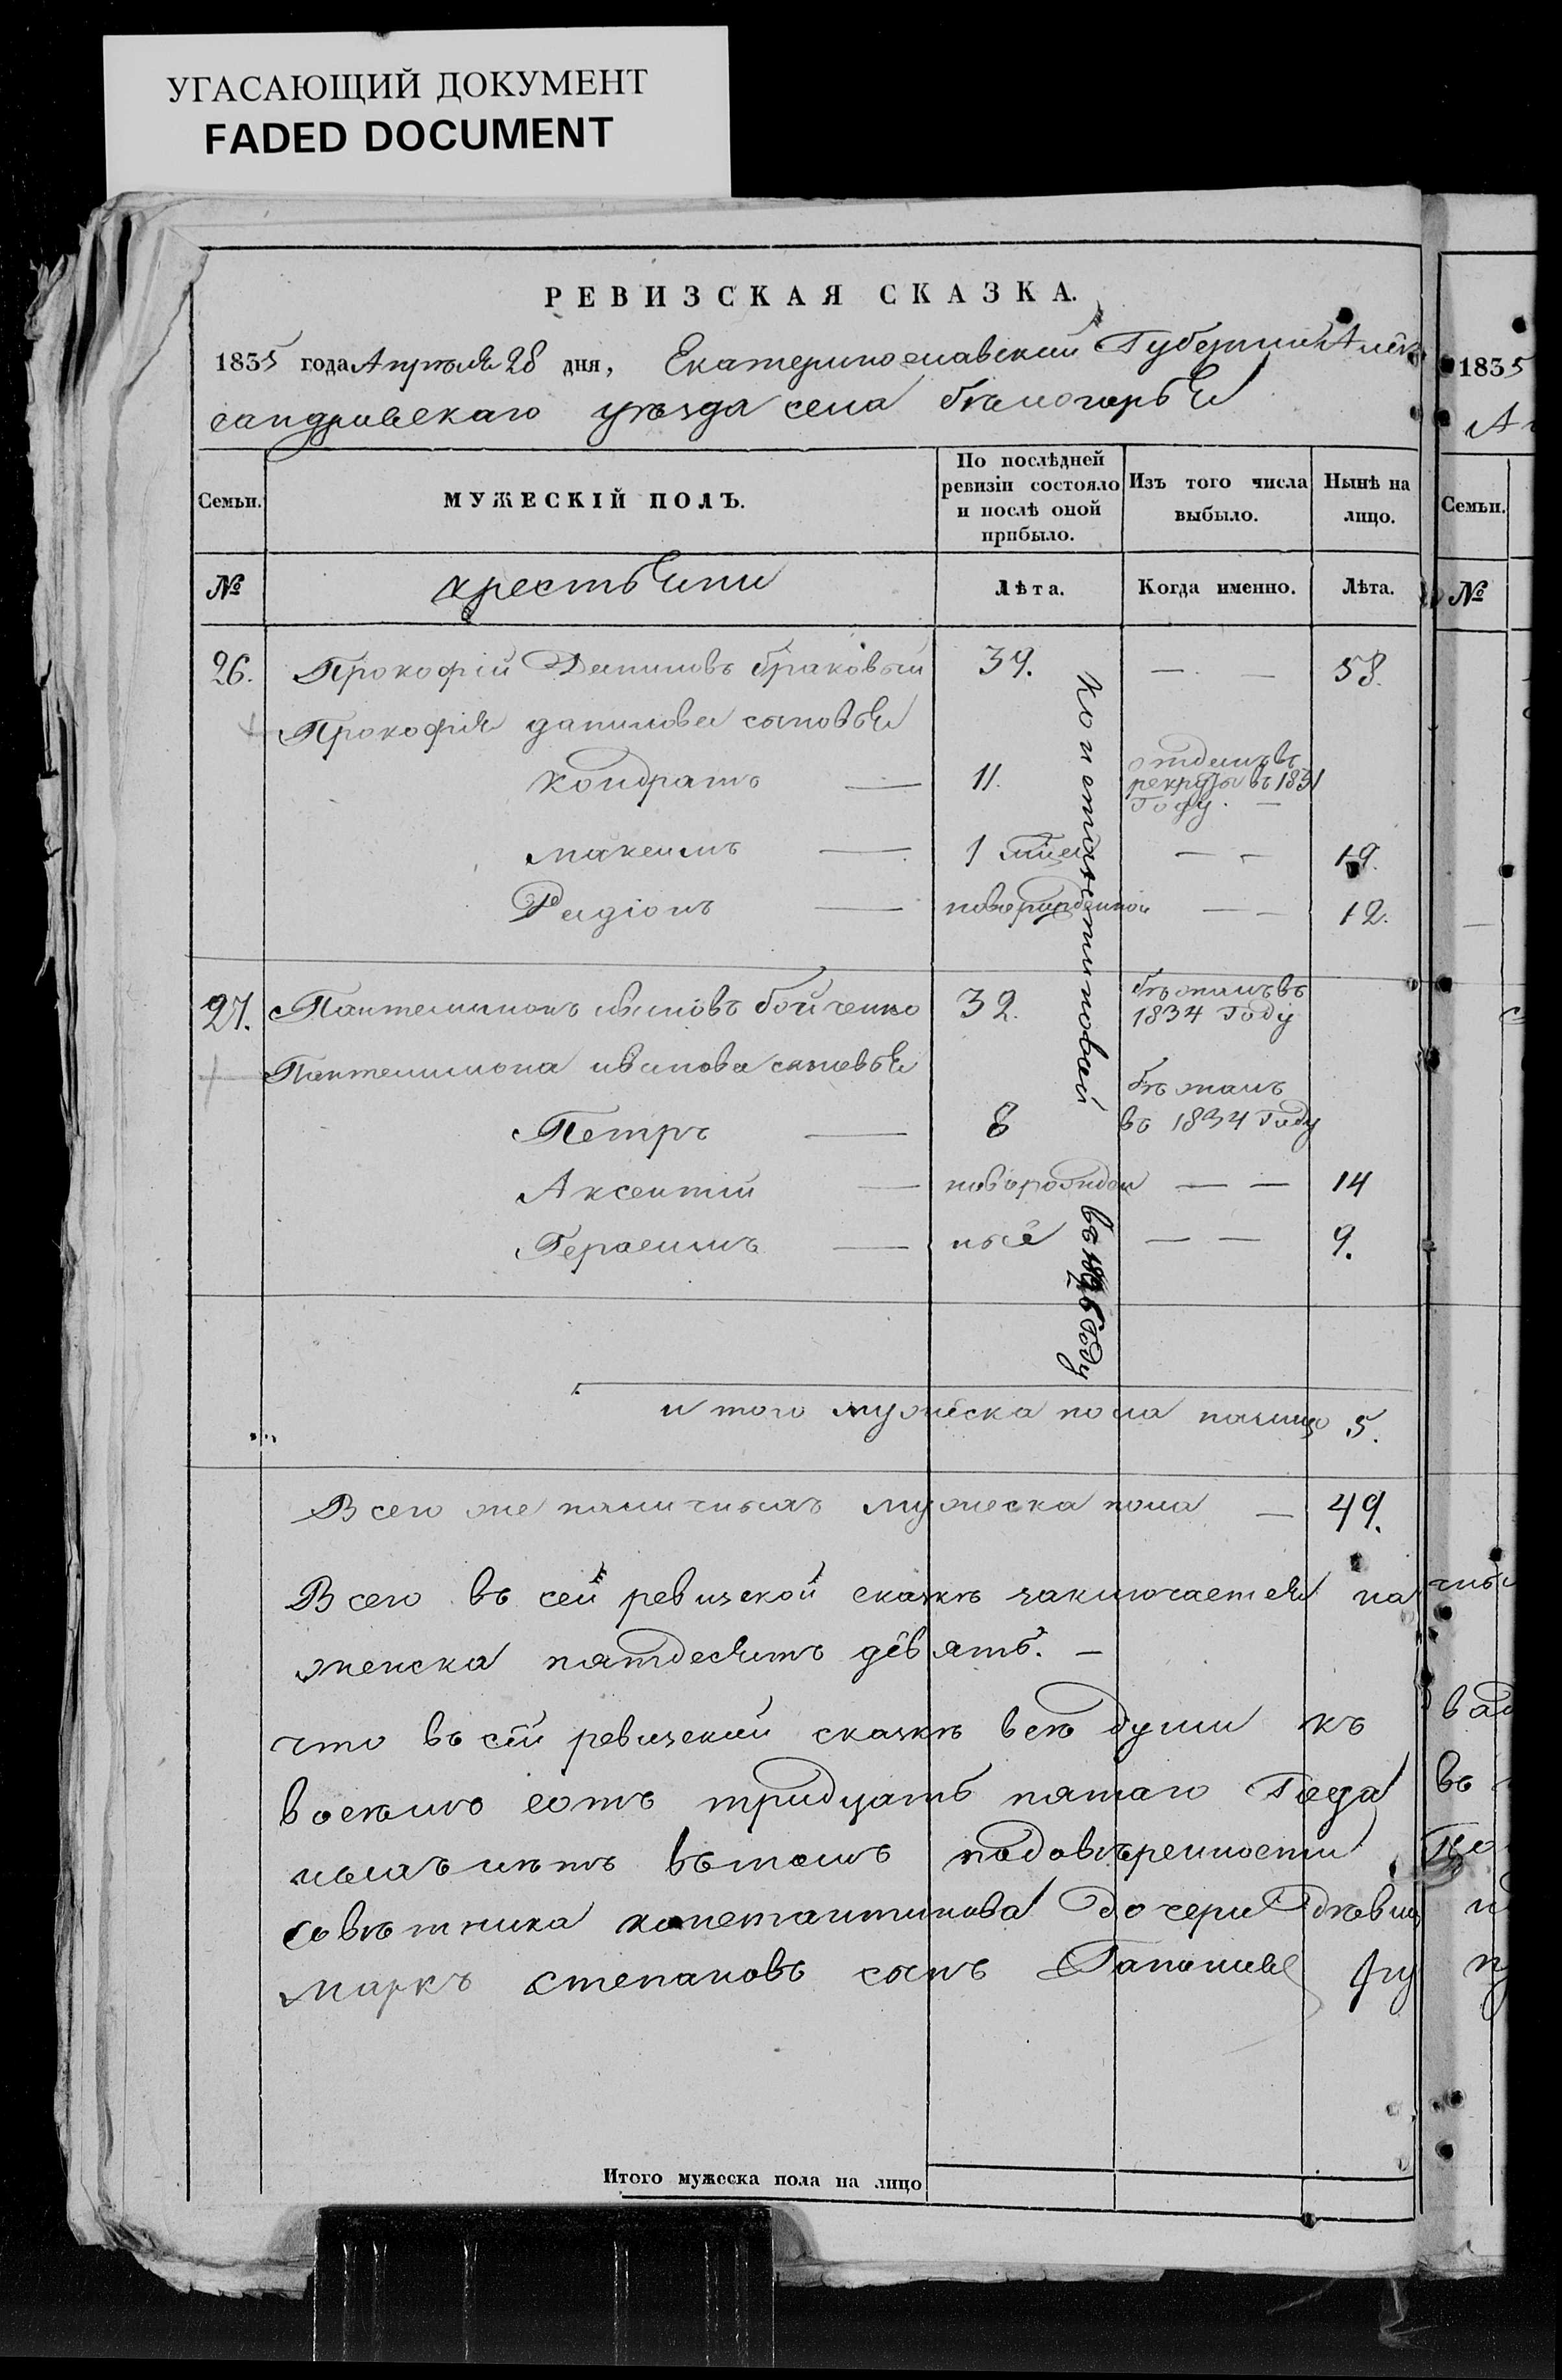 УГАСАЮЩИЙ ДОКУМЕНТ
FADED DOCUMENT
РЕВИЗСКАЯ СКАЗКА.
1835 года Апрѣля 28 дня, Екатеринославской Губернии Алек
сандровскаго уѣзда села бѣлогорья
Семьи.
МУЖЕСКІЙ ПОЛЪ.
По послѣдней ревизіи состояло и послѣ оной прибыло.
Изъ того числа выбыло.
Нынѣ на лицо.
№
крестьяни
Лѣта.
Когда именно.
Лѣта.
26. Прокофій Даниловъ браковый 39. — — 58.
Прокофія данилова сыновья
Кондратъ — 11. отданъ въ рекруты въ 1831 Году. —
максимъ — 1 — — 19.
Радіонъ — новорожденной — — 12.
27. Пантелимонъ ивановъ бойченко 32. бѣжалъ въ 1834 Году
Пантелимона иванова сыновья
Петръ — 8 бѣжалъ въ 1834 Году
Аксентій — новорожден — — 14
Герасимъ — ные — — 9.
въ Году
и того мужеска пола налицо 5.
Всего же наличныхъ мужеска пола — 49.
Всего въ сей ревизской сказкѣ заключается на
женска пятдесятъ девять. —
что въ сей ревизской сказкѣ всѣ души къ
восемь сотъ тридцать пятаго Года
въ томъ подовѣренности
совѣтника константинова дочери дѣвиц
маркъ степановъ сынъ
Итого мужеска пола на лицо
1835
Семьи.
№